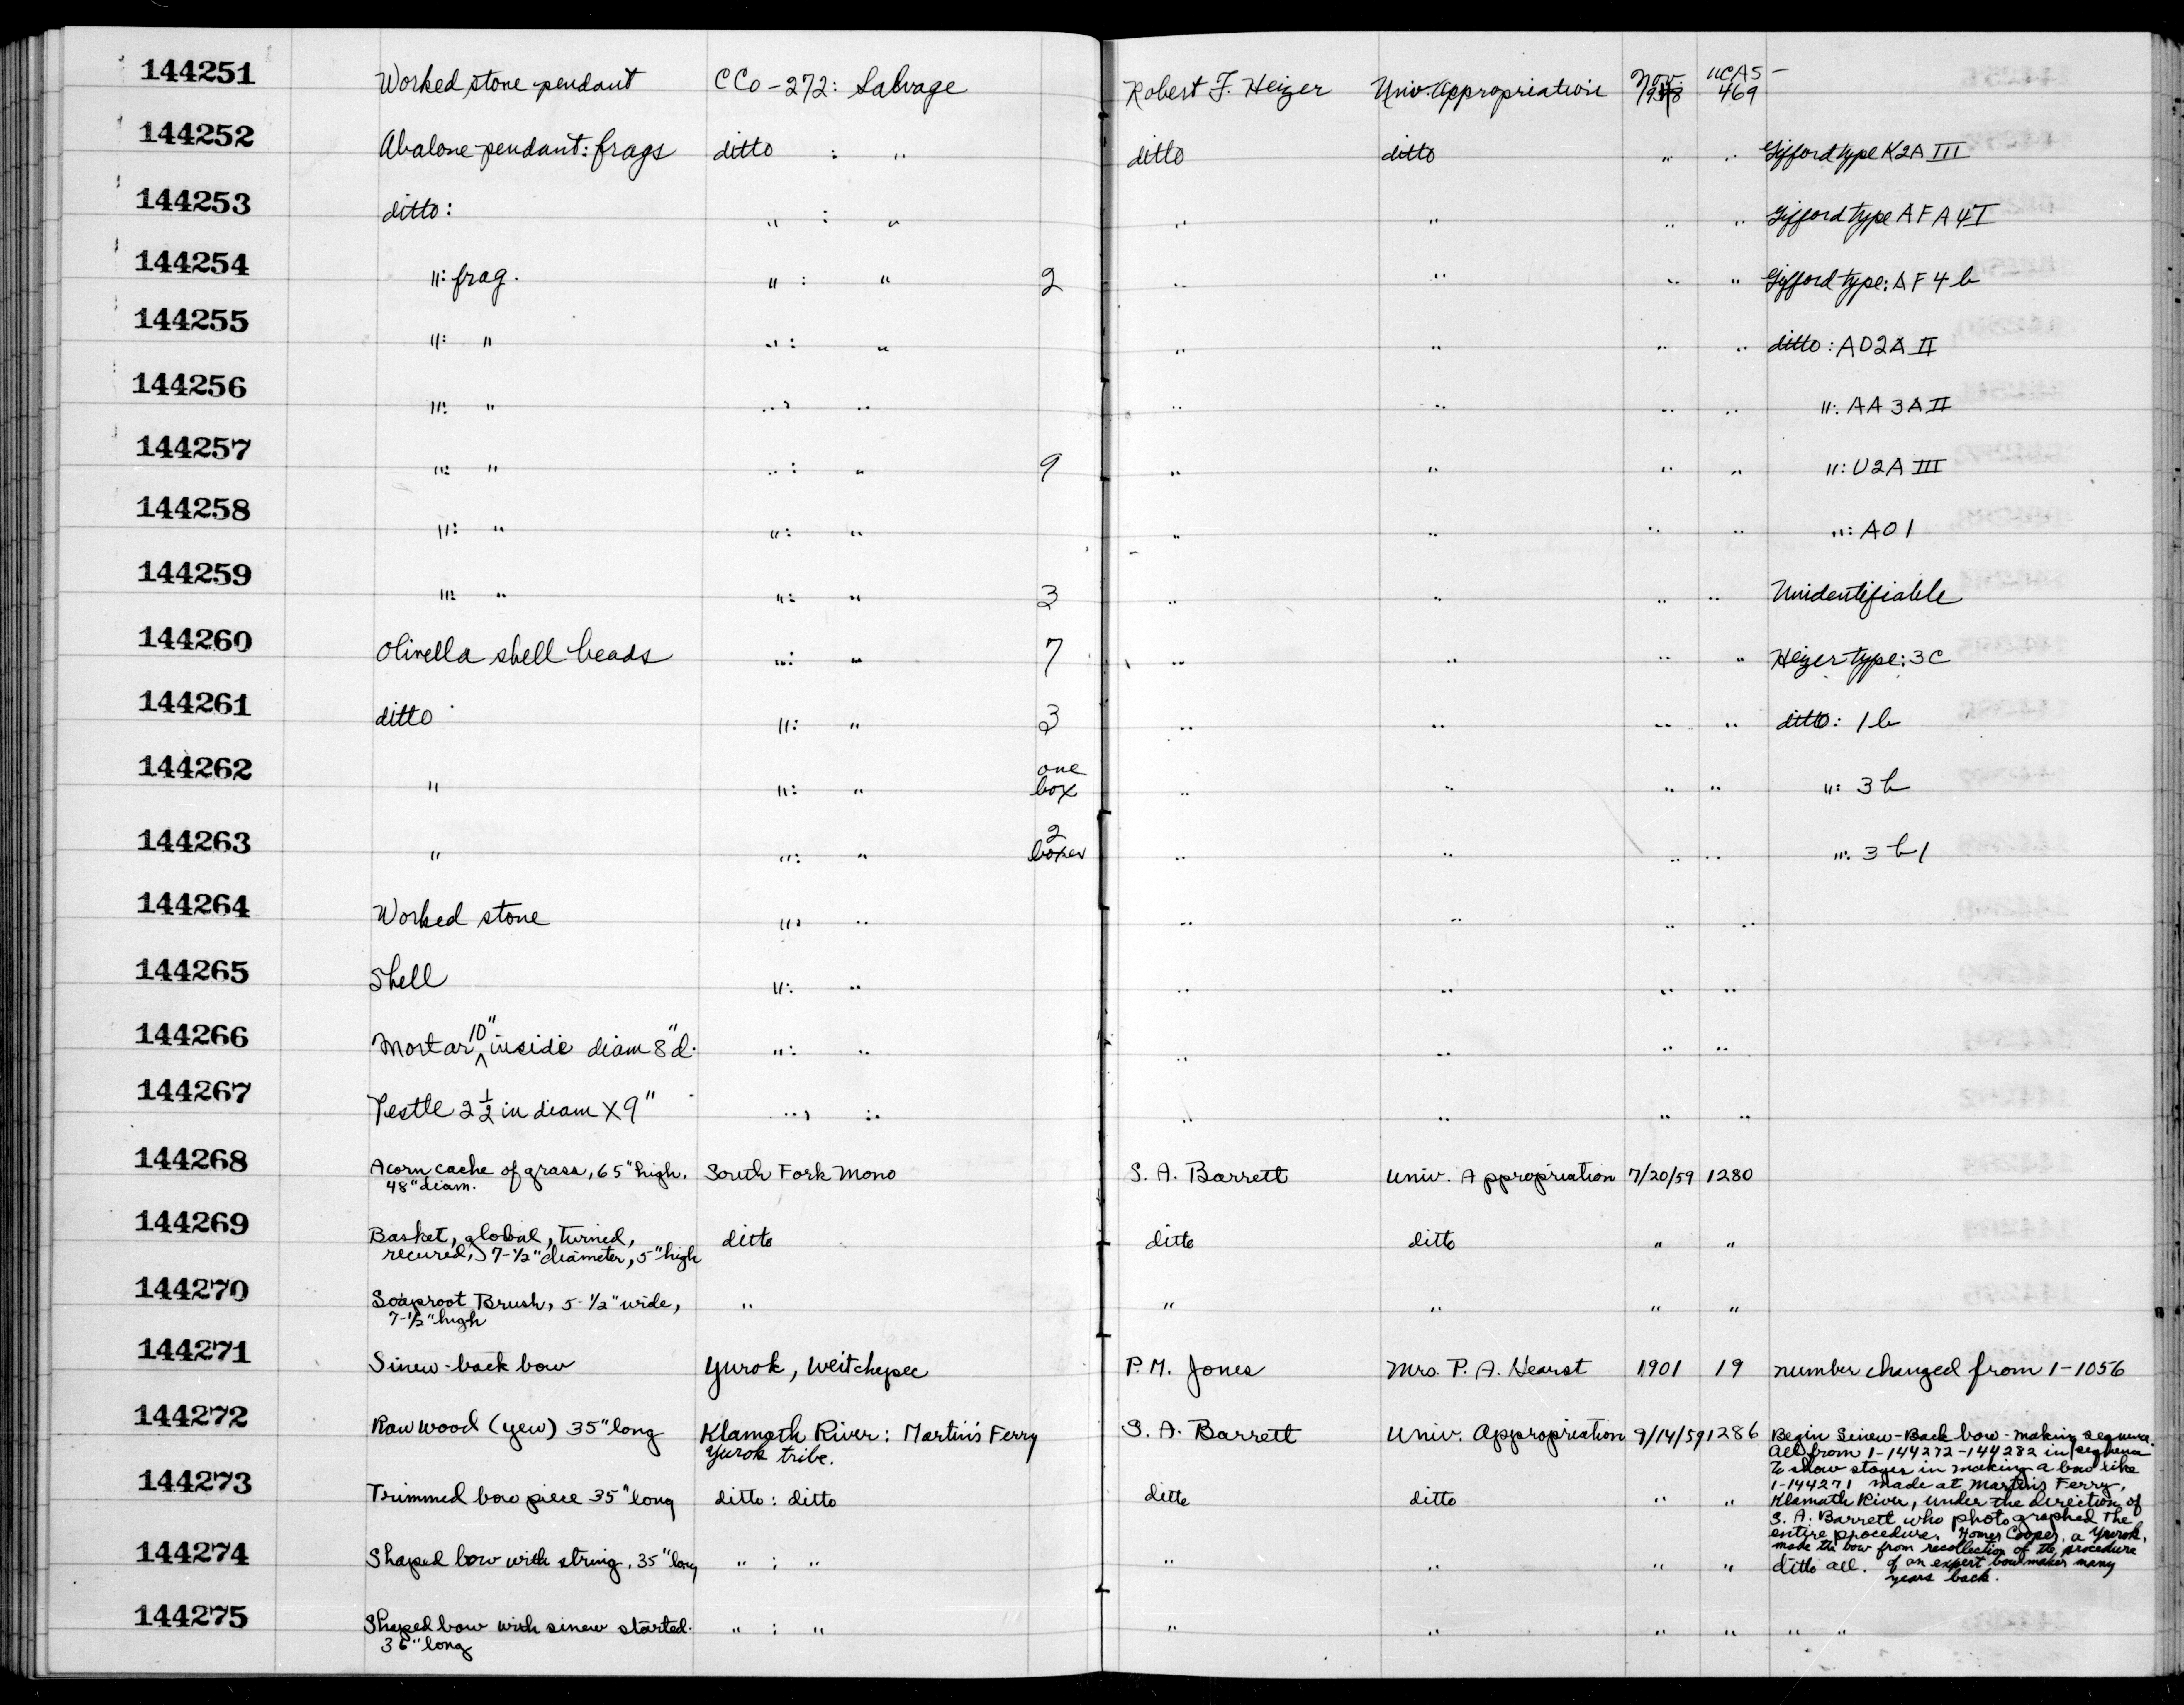 144251 Worked stone pendant CCo-272: Salvage Robert F. Heizer Univ. Appropriation Nov. UCAS- 469
144252 Abalone pendant: frags ditto : " ditto ditto " " Gifford type K2A III
144253 ditto: " : " " " " " Gifford type AFA4I
144254 ": frag. " : " 2 " " " " Gifford type: AF4b
144255 ": " " : " " " " " ditto: AO2A II
144256 ": " " : " " " " " ": AA3AII
144257 ": " " : " 9 " " " " ": U2A III
144258 ": " ": " " " " " ": AO1
144259 ": " ": " 3 " " " " Unidentifiable
144260 Olivella shell beads ": " 7 " " " " Heizer type: 3C
144261 ditto ": " 3 " " " " ditto: 1b
144262 " ": " one box " " " " ": 3b
144263 " ": " 2 boxes " " " " ": 3b1
144264 Worked stone ": " " " " "
144265 Shell ": " " " " "
144266 Mortar 10" inside diam 8" d. ": " " " " "
144267 Pestle 2 1/2 in diam X 9" ": " " " " "
144268 Acorn cache of grass, 65" high, South Fork Mono S. A. Barrett Univ. Appropriation 7/20/59 1280
48" diam.
144269 Basket, global, turned, ditto ditto ditto " "
recured, 7-1/2" diameter, 5" high
144270 Soaproot Brush, 5-1/2" wide, " " " " "
7-1/2" high
144271 Sinew-back bow Yurok, Weitchepec P. M. Jones Mrs. P. A. Hearst 1901 19 number changed from 1-1056
144272 Raw wood (yew) 35" long Klamath River: Martin's Ferry S. A. Barrett Univ. Appropriation 9/14/59 1286 Begin Sinew-Back bow-making sequence.
Yurok tribe. All from 1-144272-144282 in sequence
To show stages in making a bow like
144273 Trimmed bow piece 35" long ditto: ditto ditto ditto " " 1-144271 made at Martin's Ferry,
Klamath River, under the direction of
S. A. Barrett who photographed the
entire procedure. Homer Cooper, a Yurok,
made the bow from recollection of the procedure
of an expert bowmaker many
years back.
144274 Shaped bow with string, 35" long " : " " " " " ditto all.
144275 Shaped bow with sinew started. " : " " " " " " "
36" long